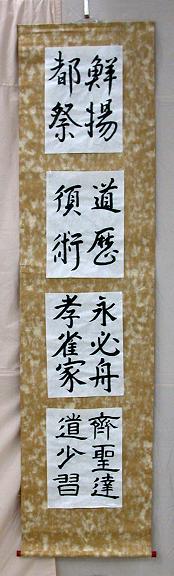 鮮揚
都祭
道歴
須術
永必舟
孝雀家
齊聖達
道少習